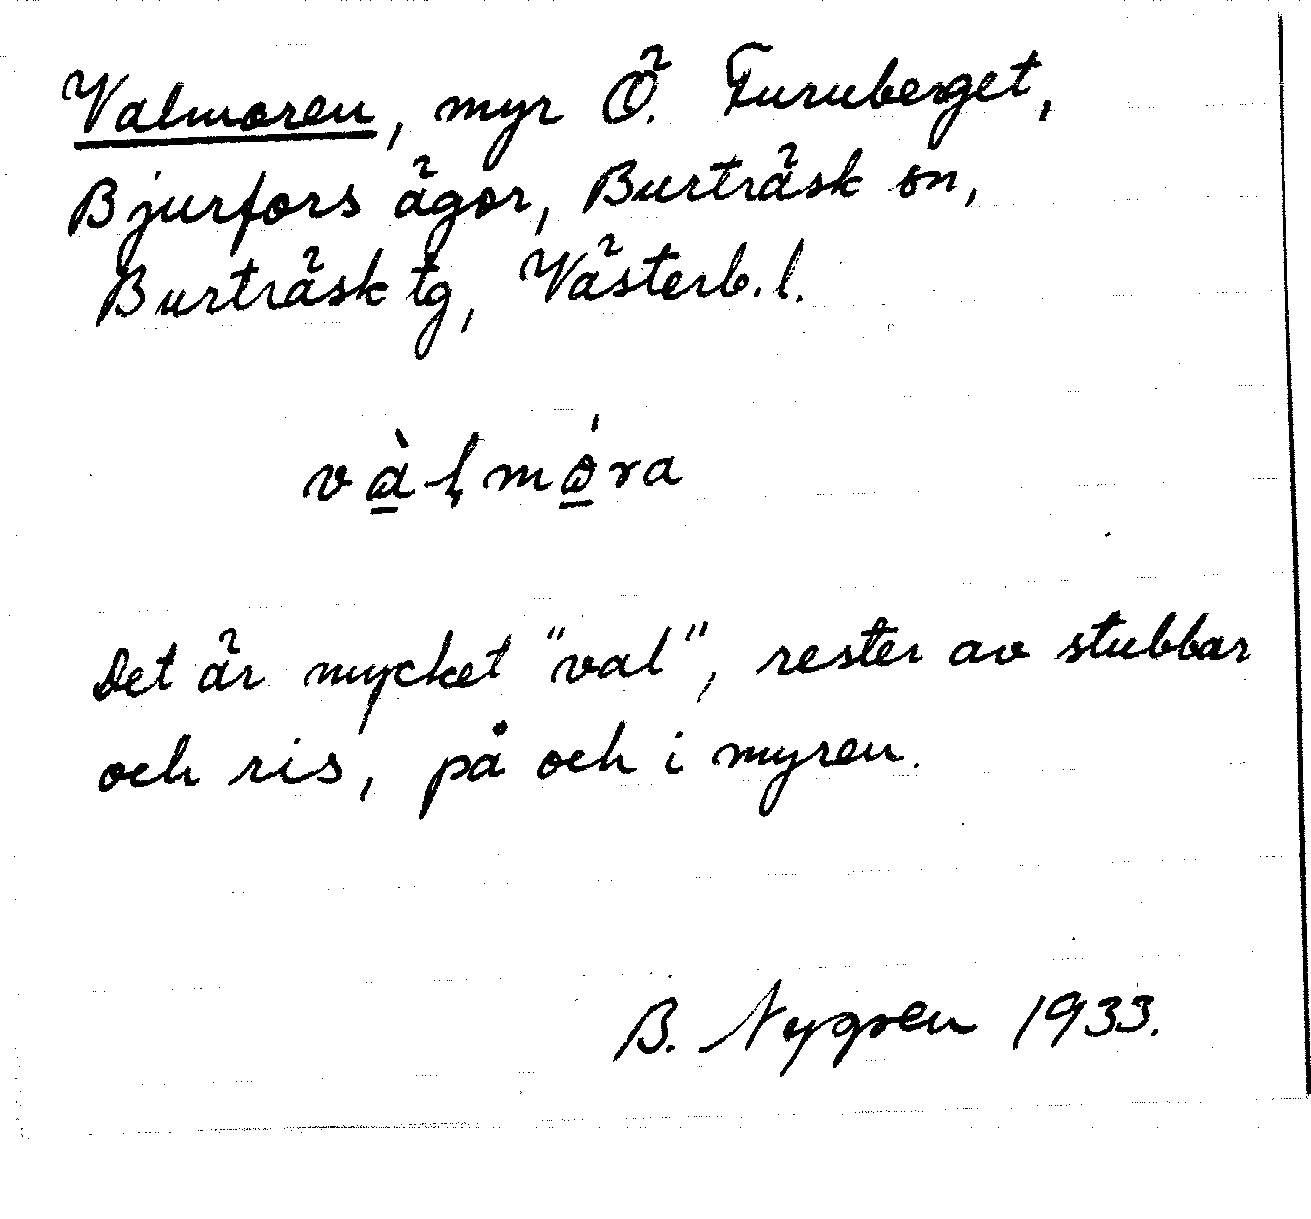 Valmoren, myr Ö. Furuberget,
Bjurfors ägor, Burträsk sn,
Burträsk tg, Västerb. l.
vàḷmo̱'ra
Det är mycket "val", rester av stubbar
och ris, på och i myren.
B. Nygren 1933.